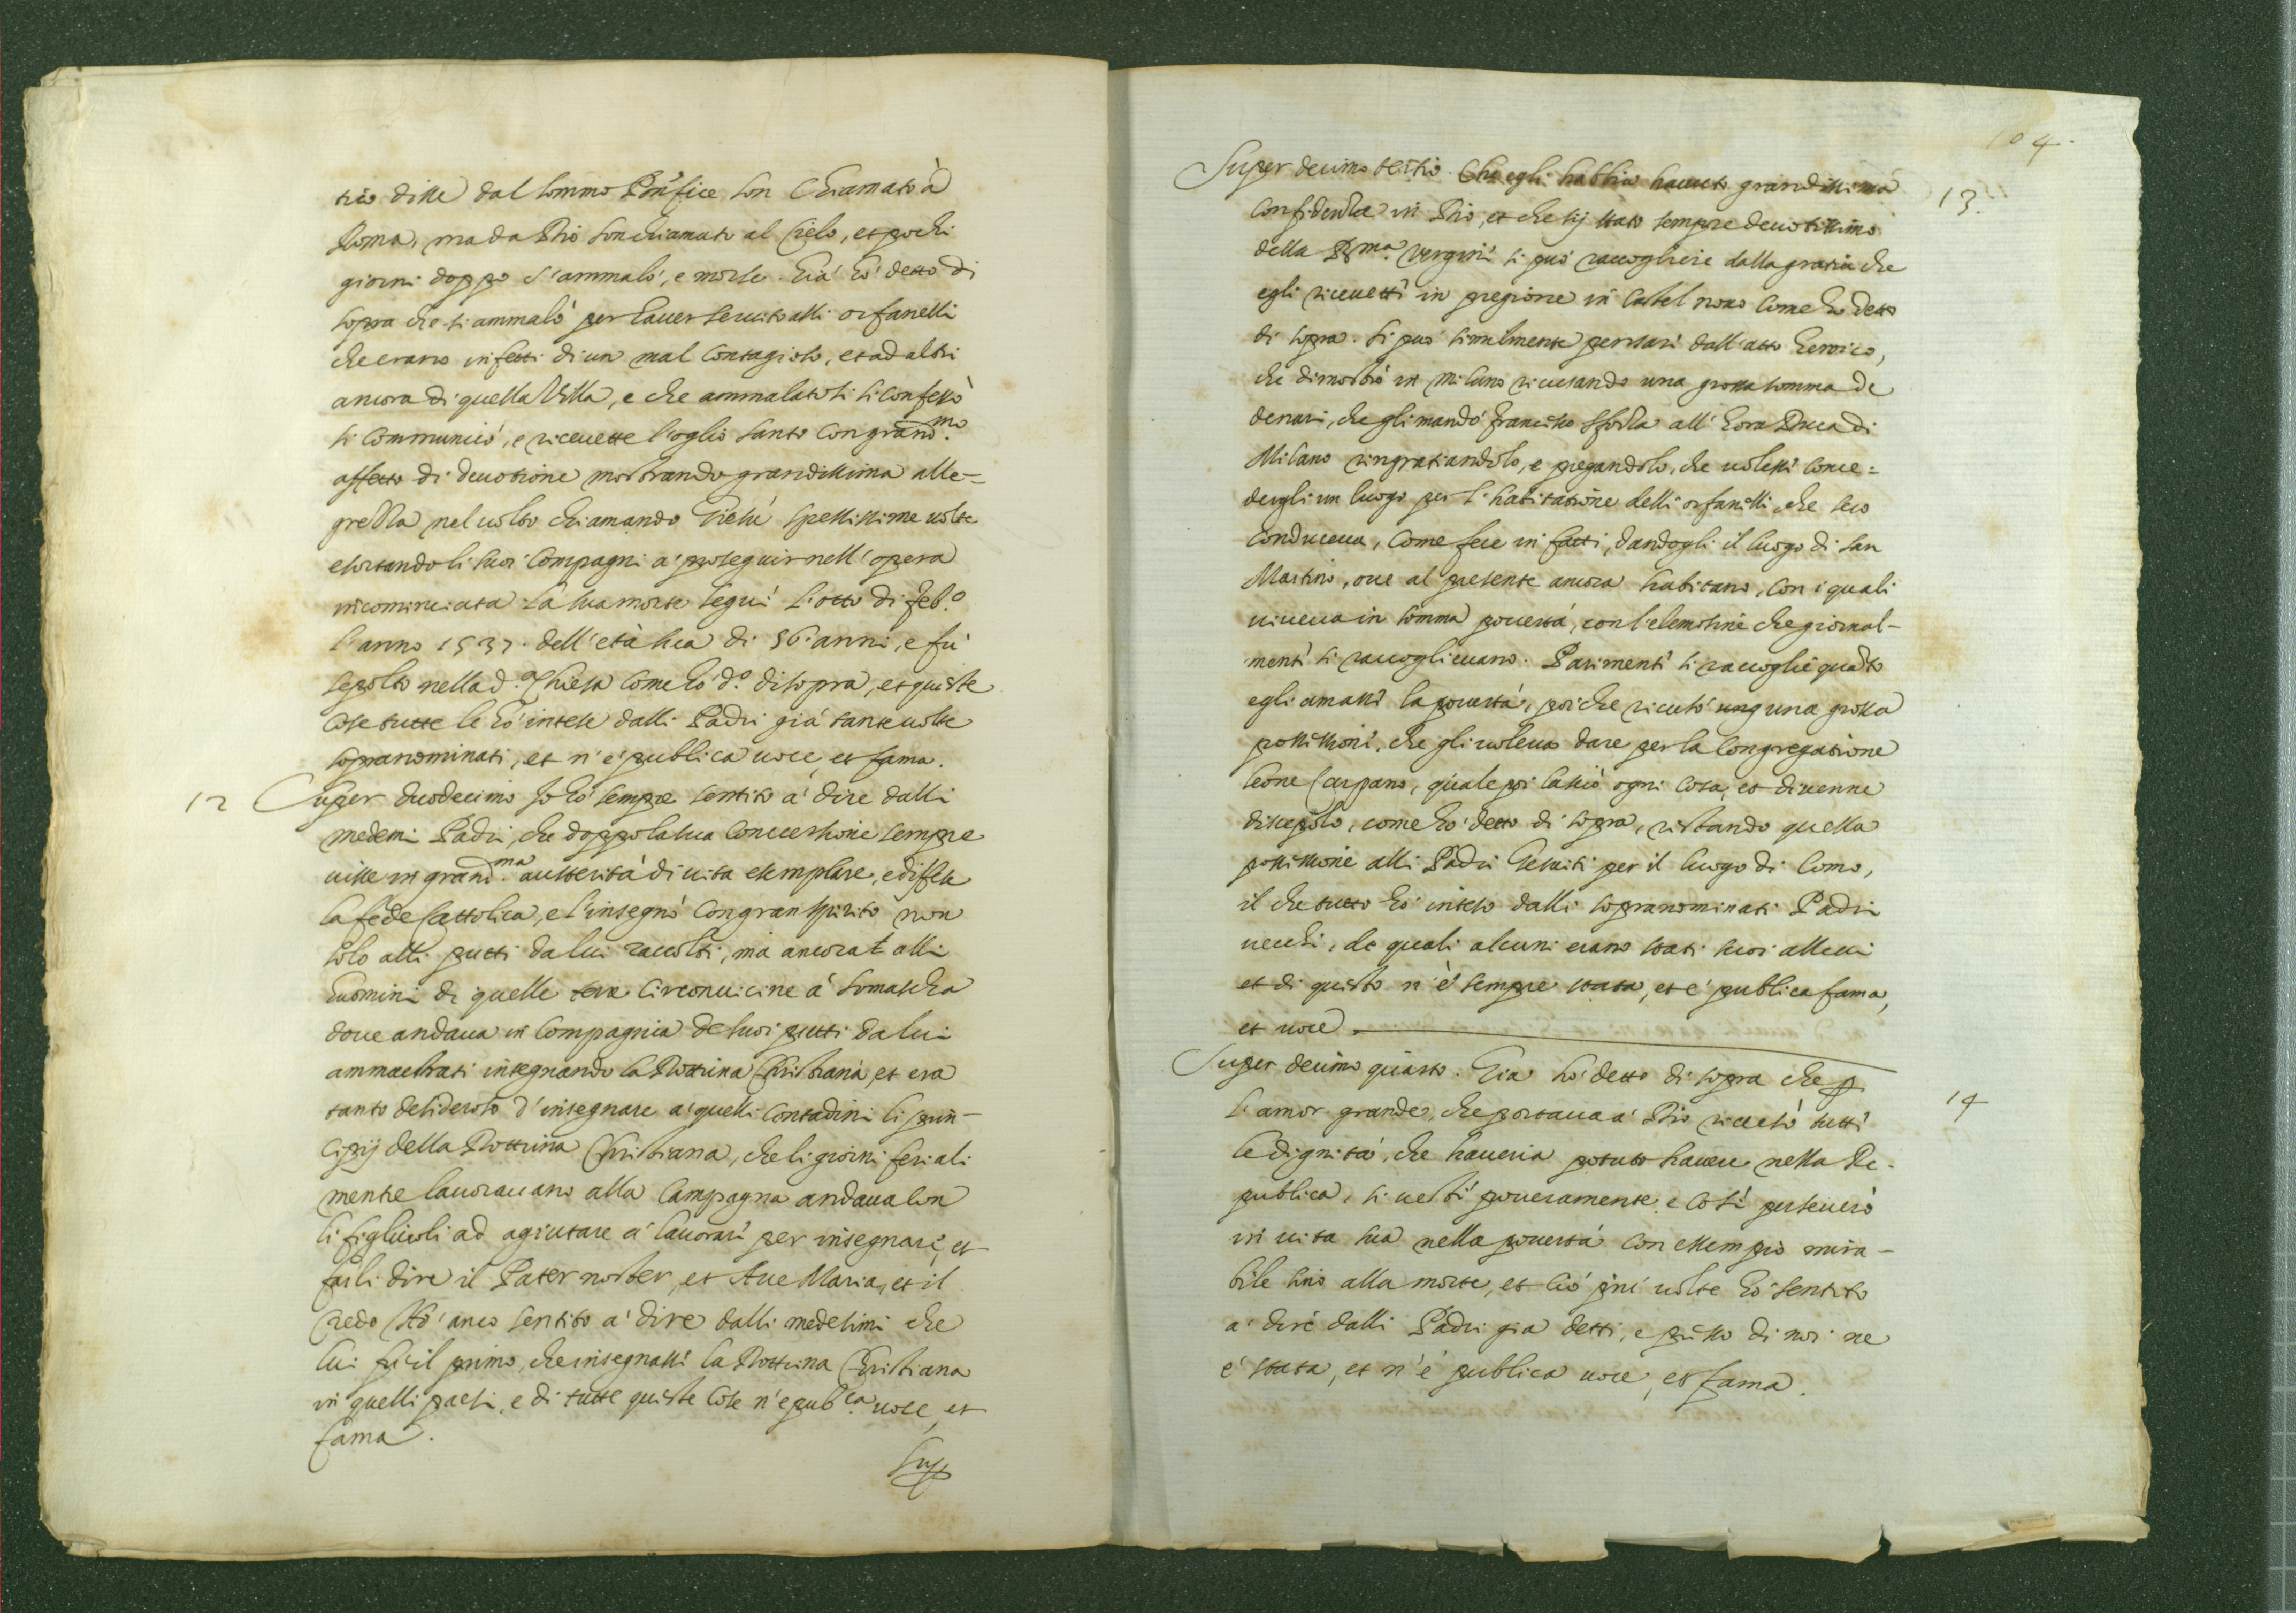 trio disse dal sommo Põtifice son chiamato à
Roma, ma da Dio son chiamato al Cielo, et pochi
giorni doppo s'ammalò, e morse. Già hò detto di
sopra che si ammalò per hauer seruito alli orfanelli
che erano infetti di un mal contagioso, et ad altri
ancora di quella Villa, e che ammalatosi si confessò
si communicò, e riceuette l'oglio santo con grand.mo
affetto di deuotione mostrando grandissima alle-
grezza nel uolto chiamando Giesù spessissime uolte
esortando li suoi compagni à proseguir nell'opera
incominciata. la sua morte seguì l'otto di feb.o
l'anno 1537. dell'età sua di 56. anni, e fù
sepolto nella d.a Chiesa come hò d.o di sopra, et queste
cose tutte le hò intese dalli Padri già tante uolte
sopranominati, et n'è publica uoce, et fama.
12 Super duodecimo Io hò sempre sentito à dire dalli
medemi Padri, che doppo la sua conuersione sempre
uisse in grand.ma austerità di uita esemplare, e difese
la fede Cattolica, e l'insegnò con gran spirito non
solo alli putti da lui raccolti, mà ancora alli
huomini di quelle terre circonuicine à Somascha
doue andaua in compagnia de suoi putti da lui
ammaestrati insegnando la Dottrina Christiana, et era
tanto desideroso d'insegnare à quelli contadini li prin-
cipij della Dottrina Christiana, che li giorni feriali
mentre lauorauano alla Campagna andaua con
li figliuoli ad agiutare à lauorare per insegnare, et
farli dire il Pater noster, et Aue Maria, et il
Credo. Hò anco sentito à dire dalli medesimi che
lui fù il primo, che insegnasse la Dottrina Christiana
in quelli paesi, e di tutte queste cose n'è pub.ca uoce, et
fama.
Sup
104.
Super decimo tertio. Che egli habbia hauuto grandissima 13.
confidenza in Dio, et che sij stato sempre deuotissimo
della B.ma Vergine si può raccogliere dalla gratia che
egli riceuette in pregione in Castel nouo come hò detto
di sopra. Si può similmente pensare dall'atto heroico,
che dimostrò in Milano ricusando una grossa somma de
denari, che gli mandò Francesco Sforza all'hora Duca di
Milano ringratiandolo, e pregandolo, che uolesse conce=
dergli un luogo per l'habitatione delli orfanelli, che seco
conduceua, come fece in fatti, dandogli il luogo di San
Martino, oue al presente ancora habitano, con i quali
uiueua in somma pouertà, con l'elemosine che giornal-
mente si raccoglieuano. Parimente si raccoglie quãto
egli amasse la pouertà, poiche ricusò ung una grossa
possessione, che gli uoleua dare per la Congregatione
Leone Carpano, quale poi lasciò ogni cosa, et diuenne
discepolo, come hò detto di sopra, restando quella
possessione alli Padri Gesuiti per il luogo di Como,
il che tutto hò inteso dalli sopranominati Padri
uecchi, de quali alcuni erano stati suoi allieui
et di questo n'è sempre stata, et è publica fama,
et uoce.
Super decimo quarto. Già hò detto di sopra che p 14
l'amor grande, che portaua à Dio ricusò tutte
le dignità, che haueria potuto hauere nella Re-
publica, si uestì poueramente, e così perseuerò
in uita sua nella pouertà con essempio mira-
bile sino alla morte, et ciò più uolte hò sentito
à dire dalli Padri già detti, e presso di noi ne
è stata, et n'è publica uoce, et fama.